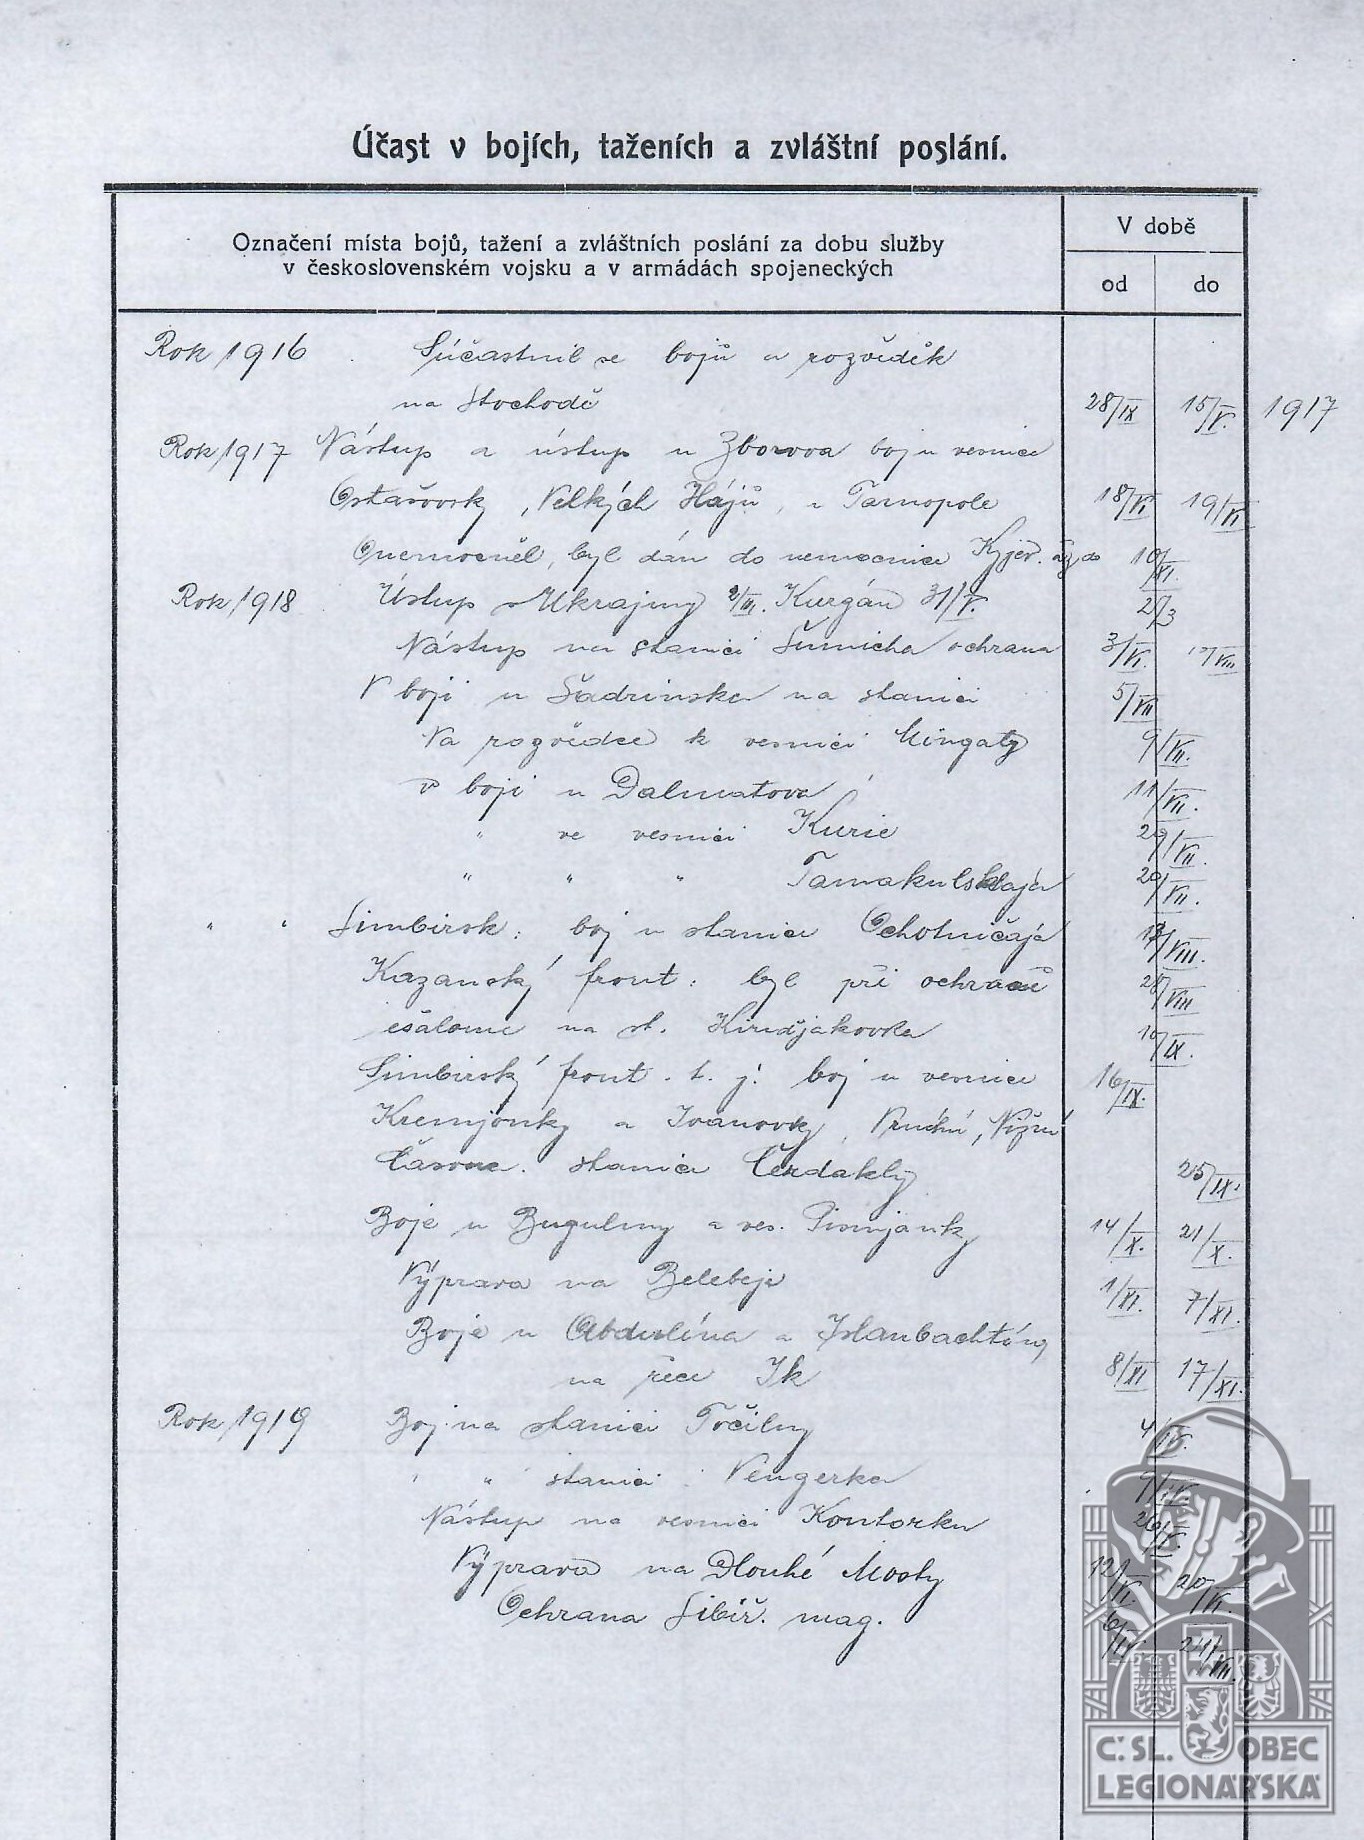 Účast v bojích, taženích a zvláštní poslání.
Označení místa bojů, tažení a zvláštních poslání za dobu služby
v československém vojsku a v armádách spojeneckých
V době
od do
Rok 1916 Súčastnil se bojů a rozvědek
na Stochodě 28/IX 15/V. 1917
Rok 1917 Nástup a ústup u Zborova boj u vesnice
Ostašovsky, Velkých Hájů, u Tarnopole 18/VI 19/VI
Onemocněl, byl dán do nemocnice Kyjev. až do 10/XI.
Rok 1918 Ústup s Ukrajiny 2/III. Kurgán 31/V. 27/3
Nástup na stanici Šumicha ochrana 3/VI. /VIII
V boji u Šadrinska na stanici 5/VII
Na rozvědce k vesnici Mingaty 9/VII.
v boji u Dalmatova 11/VII.
" ve vesnici Kurie 29/VII.
" " " Tamakulskaja 20/VII.
" " Simbirsk: boj u stanice Ochotničaja /VIII.
Kazanský front: byl při ochraně 28/VIII
ešalonu na st. Kindjakovka 10/IX.
Simbirský front. t. j. boj u vesnice 16/IX.
Kremjonky a Ivanovky, Vruchní, Nižní
stanice Čerdakly 25/IX.
Boje u Bugulmy a ves. Pismjanky 14/X. 21/X.
Výprava na Belebej 1/XI. 7/XI.
Boje u Abdulina a
na řece Ik 8/XI 17/XI.
Rok 1919 Boj na stanici Točilny 4/IV.
" " stanici Vengerka 9/IV.
Nástup na vesnici Kontorku 26/V.
Výprava na Dlouhé Mosty 12/VI. 20/VI.
Ochrana Sibiř. mag. 6/IV 24/VII.
Č.SL. OBEC
LEGIONÁŘSKÁ